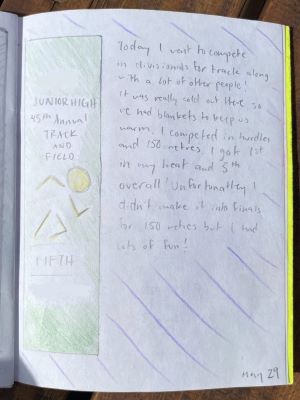 JUNIOR HIGH
45th Annual
TRACK
AND
FIELD
FIFTH
Today I went to compete
in divisionals for track along
with a lot of other people!
it was really cold out there so
we had blankets to keep us
warm. I competed in hurdles
and 150 metres. I got 1st
in my heat and 5th
overall! Unfortunatley I
didn't make it into finals
for 150 metres but I had
lots of fun!
May 29